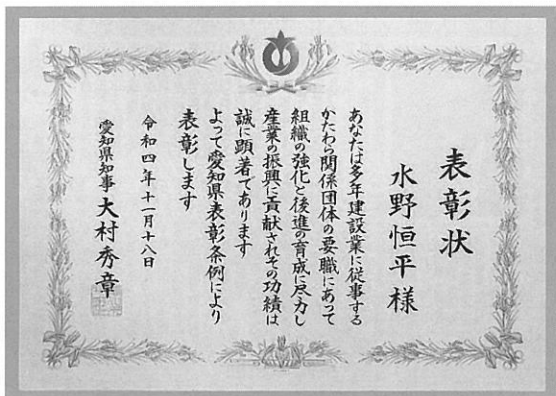 表彰状
水野恒平様
あなたは多年建設業に従事する
かたわら関係団体の要職にあって
組織の強化と後進の育成に尽力し
産業の振興に貢献されその功績は
誠に顕著であります
よって愛知県表彰条例により
表彰します
令和四年十一月十八日
愛知県知事 大村秀章